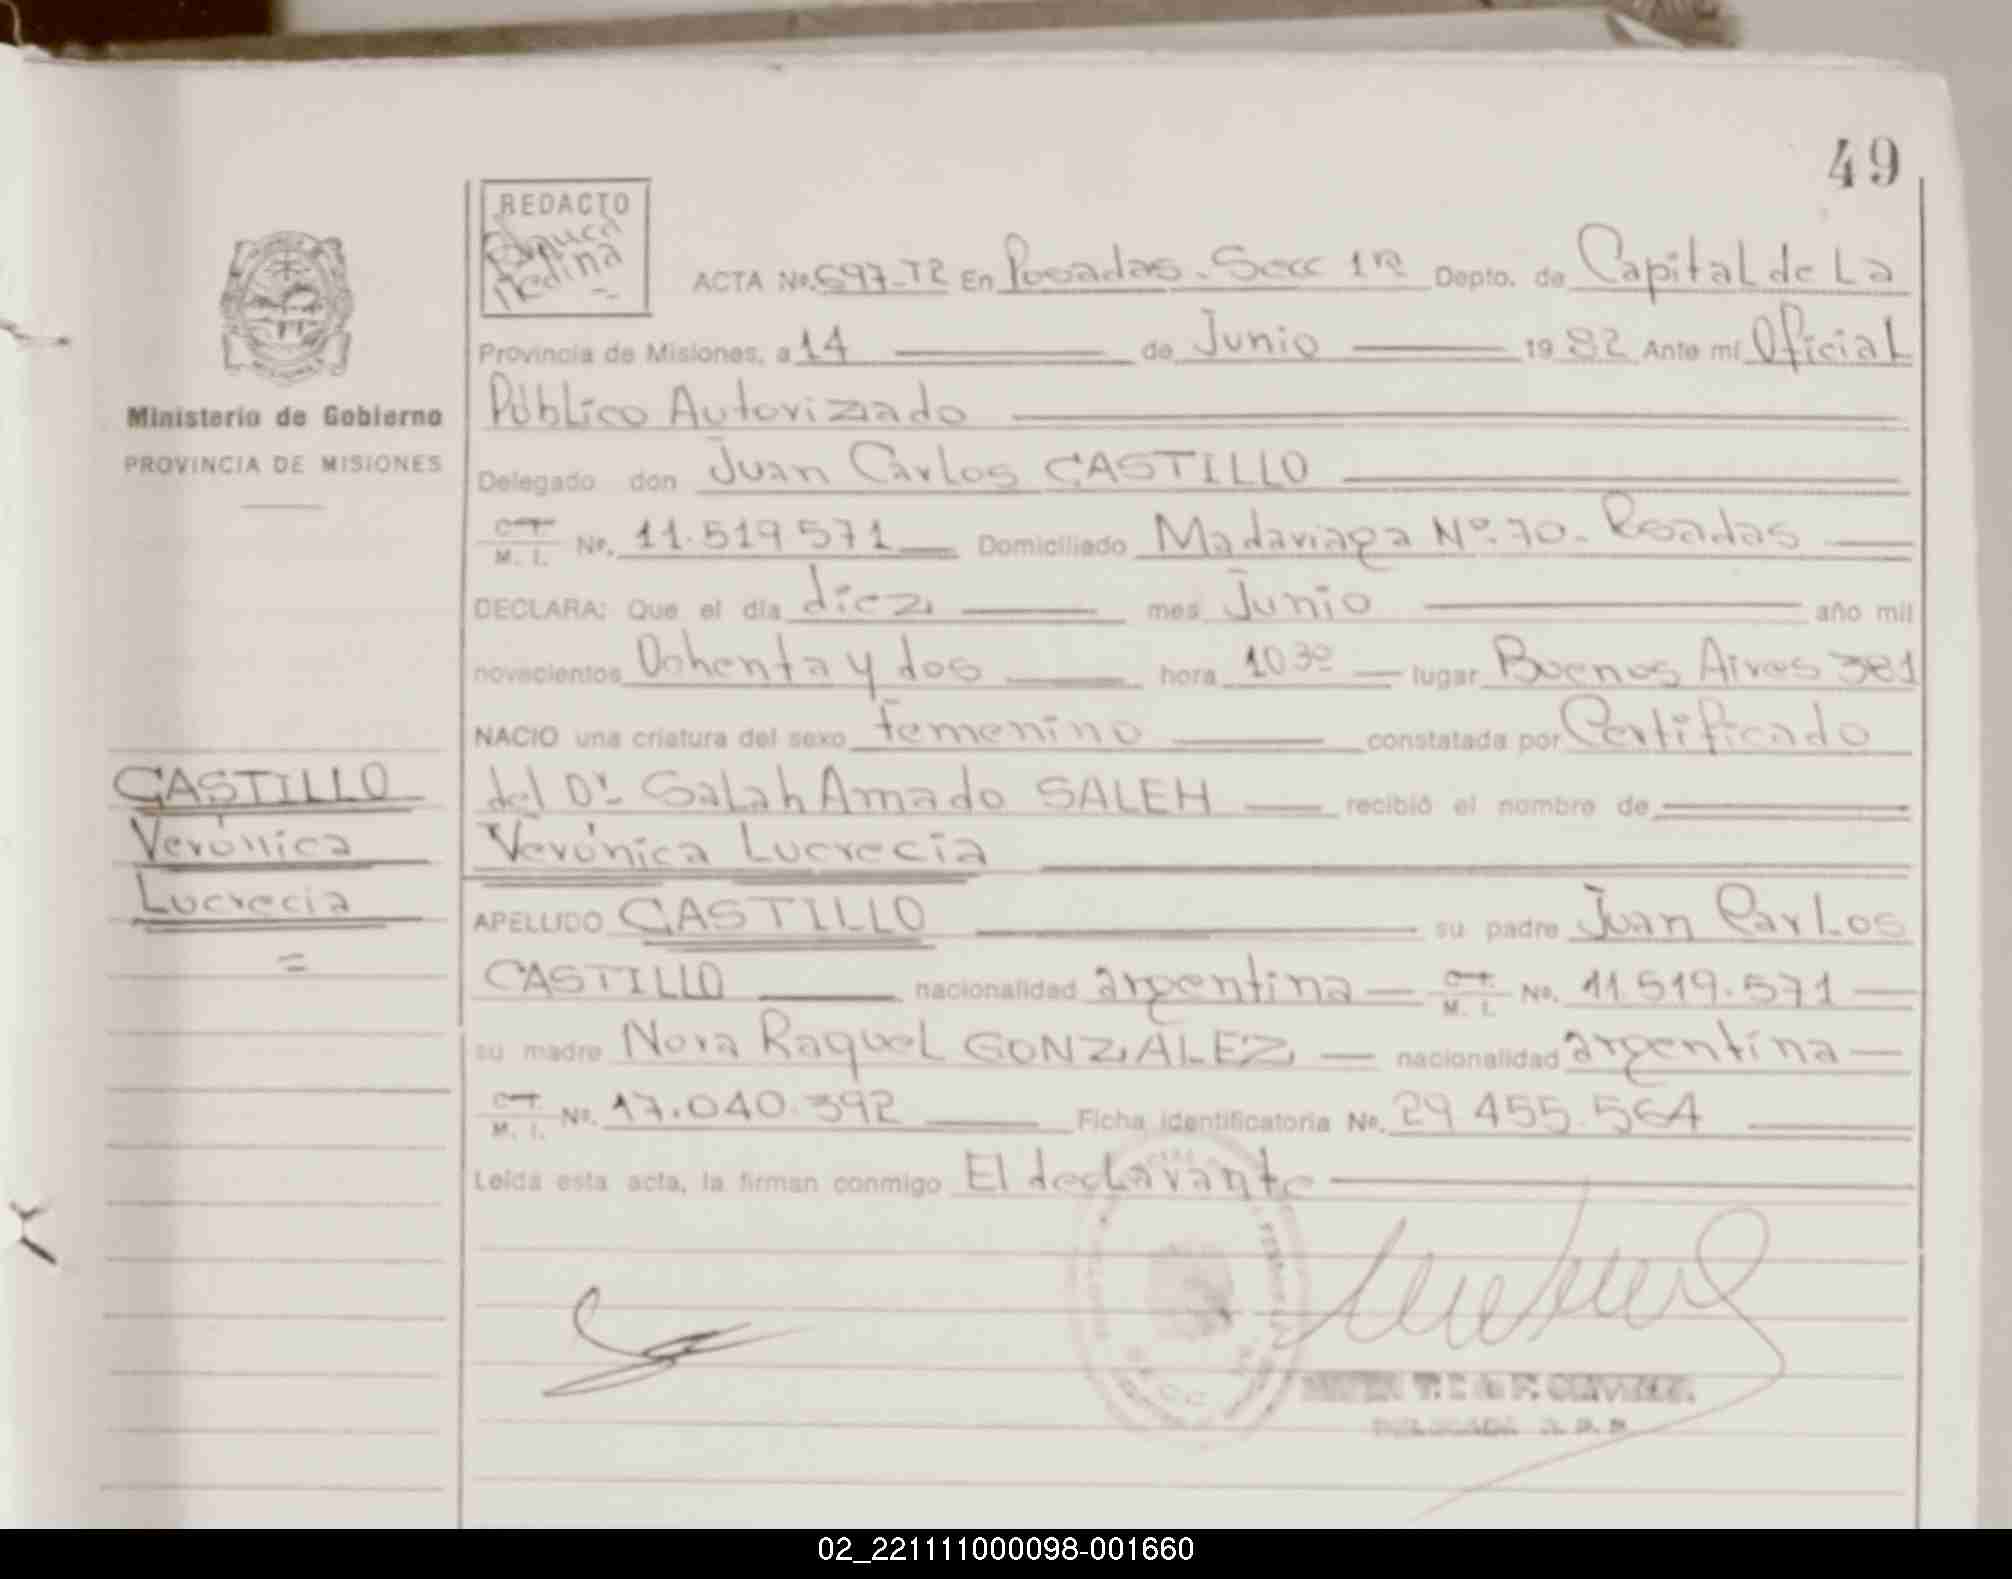 49
REDACTO
Medina
ACTA No. 697-T2 En Posadas. Secc 1ra Depto. de Capital de La
Provincia de Misiones, a 14 de Junio 1982 Ante mí Oficial
Público Autorizado
Delegado don Juan Carlos CASTILLO
C.I. M. I. No. 11.519 571 Domiciliado Madariaga No. 70. Posadas
DECLARA: Que el día diez mes Junio año mil
novecientos Ochenta y dos hora 10 30 lugar Buenos Aires 381
NACIO una criatura del sexo femenino constatada por Certificado
del Dr. Salah Amado SALEH recibió el nombre de
Verónica Lucrecia
APELLIDO CASTILLO su padre Juan Carlos
CASTILLO nacionalidad argentina C.I. M. I. No. 11.519.571
su madre Nora Raquel GONZALEZ nacionalidad argentina
C.I. M. I. No. 17.040.392 Ficha identificatoria No. 29 455.564
Leída esta acta, la firman conmigo El declarante
Ministerio de Gobierno
PROVINCIA DE MISIONES
CASTILLO
Verónica
Lucrecia
02_221111000098-001660